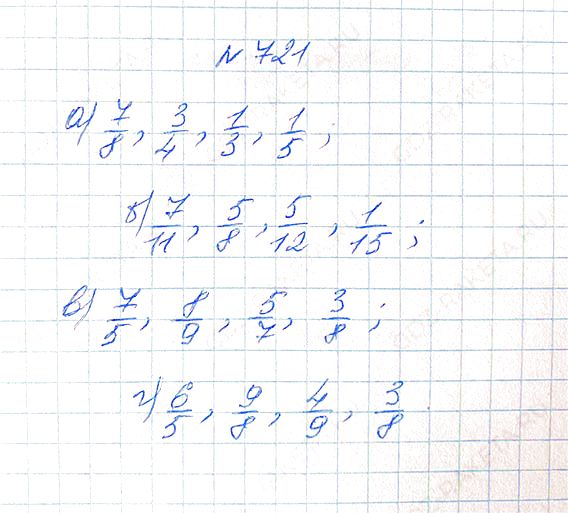 № 721
а) 7/8, 3/4, 1/3, 1/5;
б) 7/11, 5/8, 5/12, 1/15;
в) 7/5, 8/9, 5/7, 3/8;
г) 6/5, 9/8, 4/9, 3/8.